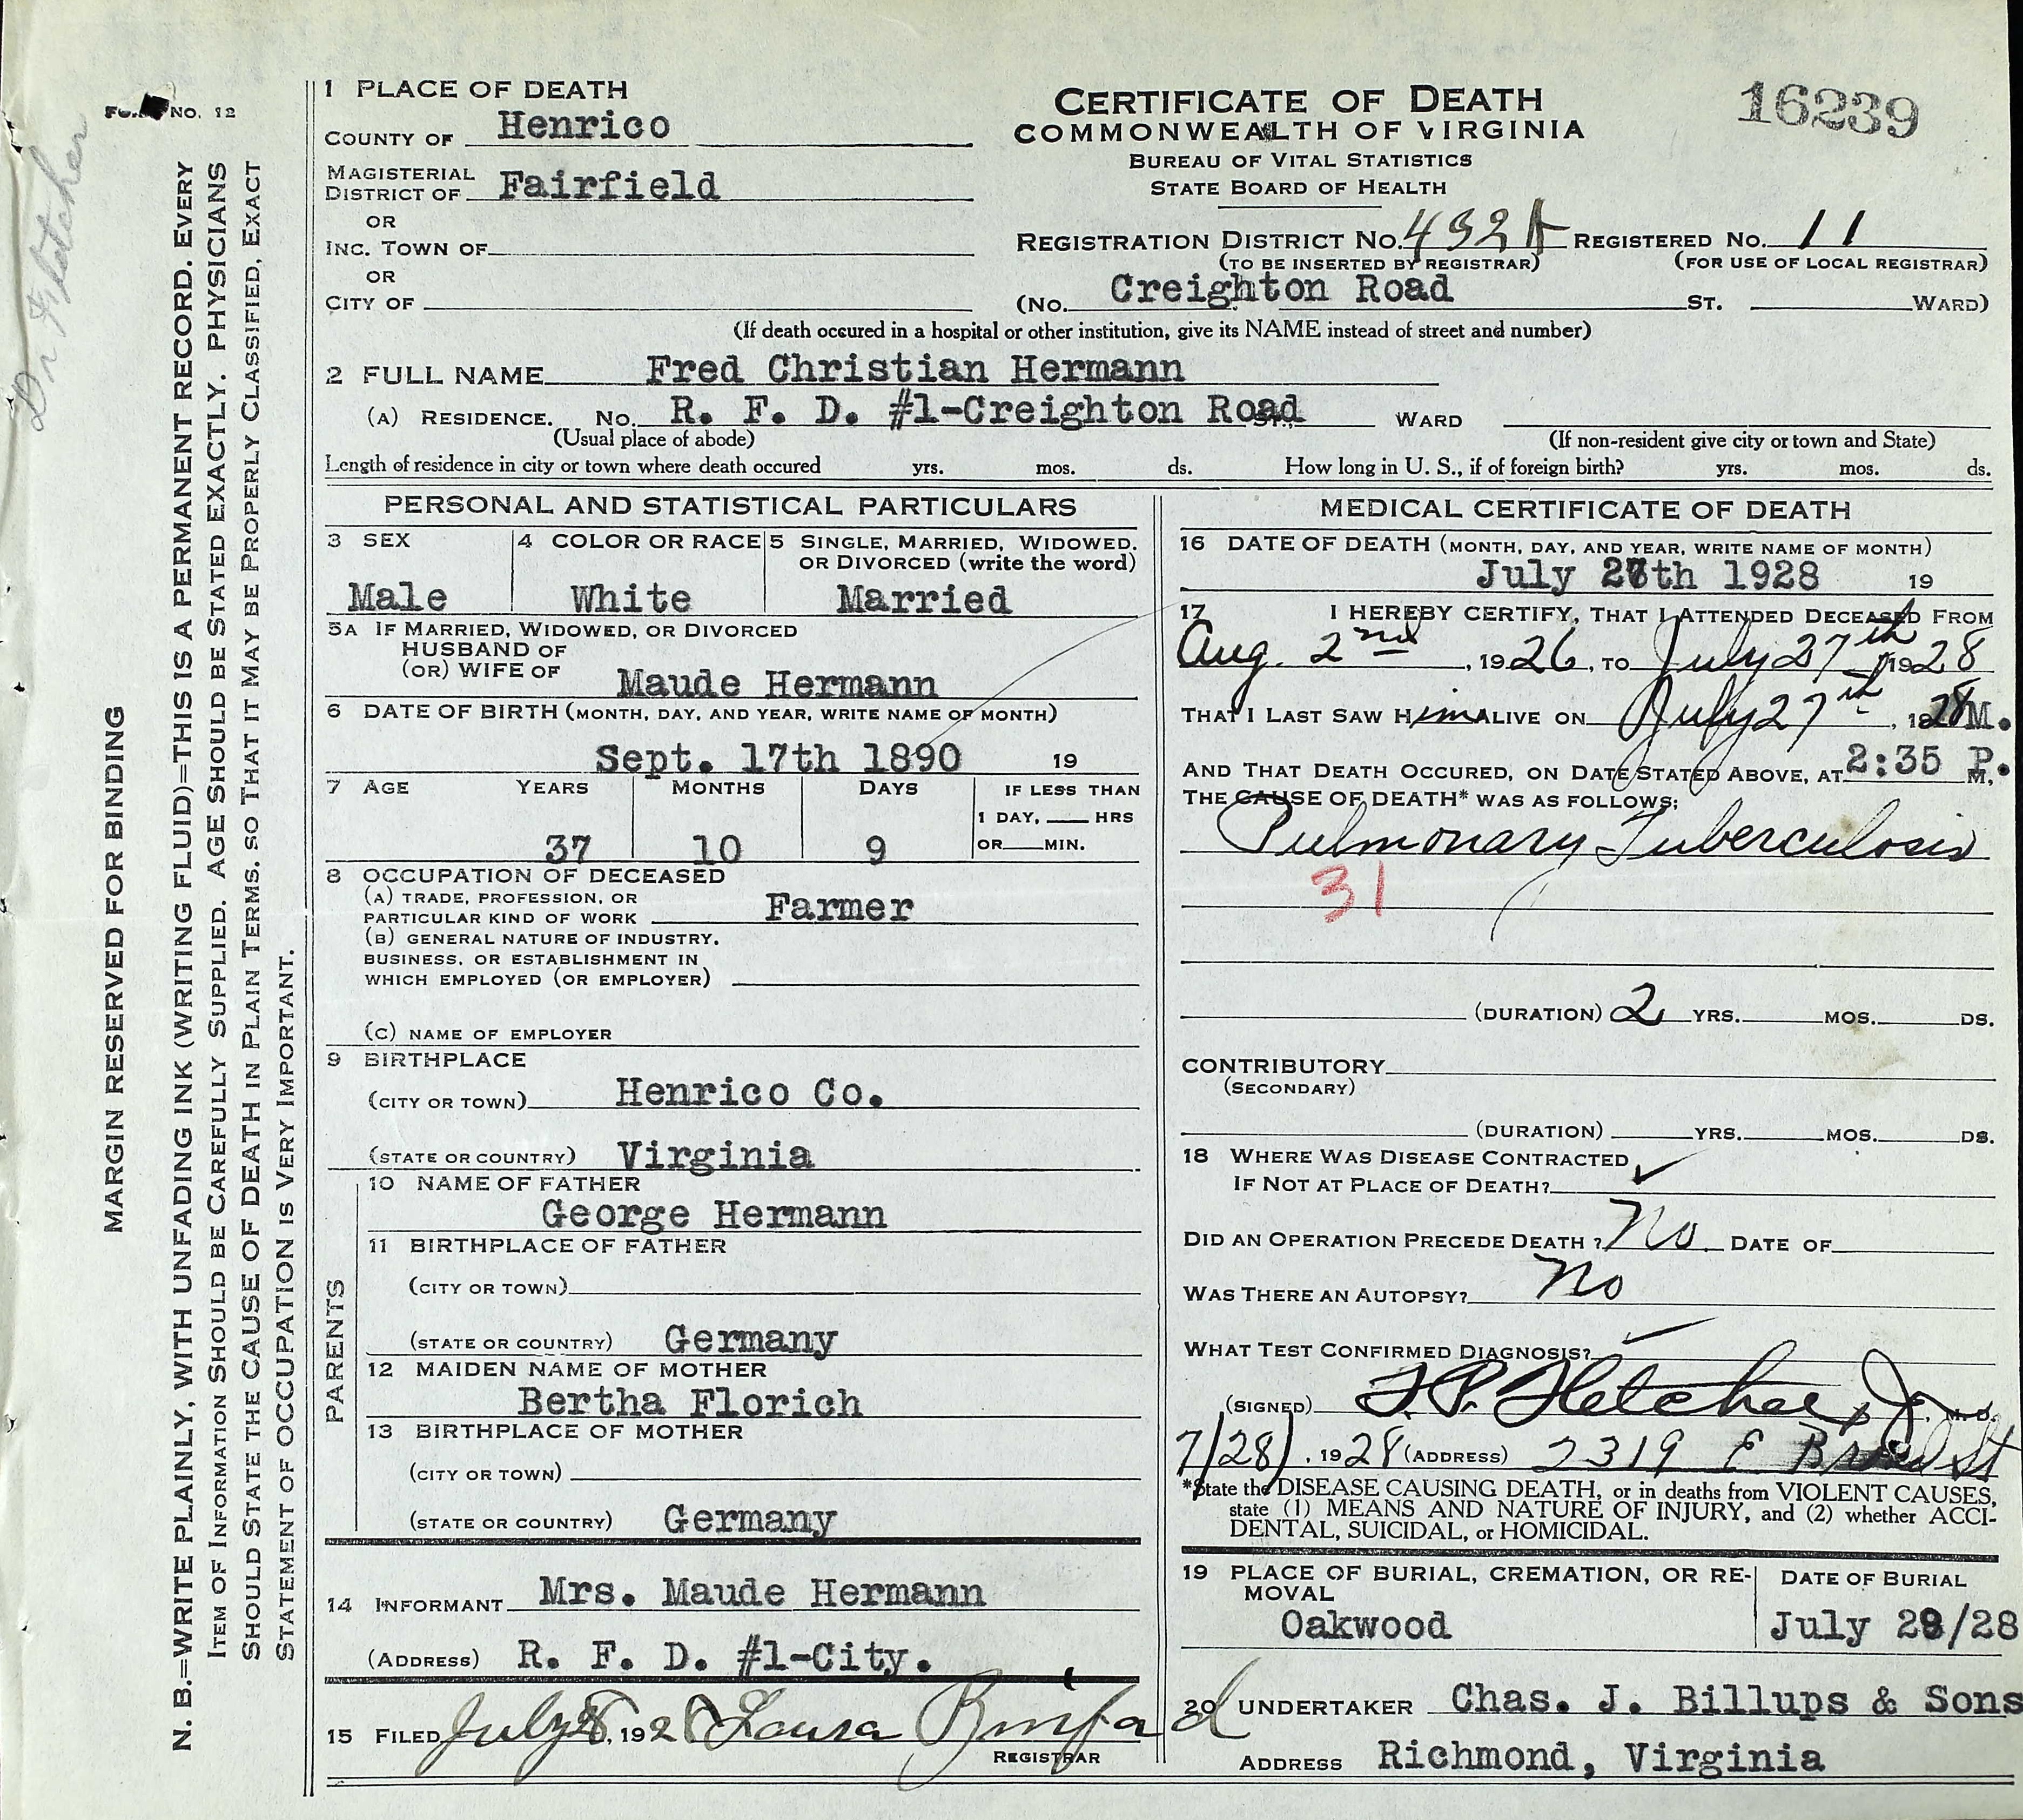 FORM NO. 12
Dr Fletcher
MARGIN RESERVED FOR BINDING
N. B.=WRITE PLAINLY, WITH UNFADING INK (WRITING FLUID)=THIS IS A PERMANENT RECORD. EVERY
ITEM OF INFORMATION SHOULD BE CAREFULLY SUPPLIED. AGE SHOULD BE STATED EXACTLY. PHYSICIANS
SHOULD STATE THE CAUSE OF DEATH IN PLAIN TERMS, SO THAT IT MAY BE PROPERLY CLASSIFIED, EXACT
STATEMENT OF OCCUPATION IS VERY IMPORTANT.
CERTIFICATE OF DEATH
COMMONWEALTH OF VIRGINIA
BUREAU OF VITAL STATISTICS
STATE BOARD OF HEALTH
16239
1 PLACE OF DEATH
COUNTY OF Henrico
MAGISTERIAL
DISTRICT OF Fairfield
OR
INC. TOWN OF
OR
CITY OF
REGISTRATION DISTRICT NO. REGISTERED NO. 11
(TO BE INSERTED BY REGISTRAR) (FOR USE OF LOCAL REGISTRAR)
(NO. Creighton Road ST. WARD)
(If death occured in a hospital or other institution, give its NAME instead of street and number)
2 FULL NAME Fred Christian Hermann
(A) RESIDENCE. NO. R. F. D. #1-Creighton Road ST., WARD
(Usual place of abode) (If non-resident give city or town and State)
Length of residence in city or town where death occured yrs. mos. ds. How long in U. S., if of foreign birth? yrs. mos. ds.
PERSONAL AND STATISTICAL PARTICULARS
3 SEX 4 COLOR OR RACE 5 SINGLE, MARRIED, WIDOWED,
OR DIVORCED (write the word)
Male White Married
5A IF MARRIED, WIDOWED, OR DIVORCED
HUSBAND OF
(OR) WIFE OF Maude Hermann
6 DATE OF BIRTH (MONTH, DAY, AND YEAR, WRITE NAME OF MONTH)
Sept. 17th 1890 19
7 AGE YEARS MONTHS DAYS IF LESS THAN
1 DAY, HRS
37 10 9 OR MIN.
8 OCCUPATION OF DECEASED
(A) TRADE, PROFESSION, OR
PARTICULAR KIND OF WORK Farmer
(B) GENERAL NATURE OF INDUSTRY,
BUSINESS, OR ESTABLISHMENT IN
WHICH EMPLOYED (OR EMPLOYER)
(C) NAME OF EMPLOYER
9 BIRTHPLACE
(CITY OR TOWN) Henrico Co.
(STATE OR COUNTRY) Virginia
PARENTS
10 NAME OF FATHER
George Hermann
11 BIRTHPLACE OF FATHER
(CITY OR TOWN)
(STATE OR COUNTRY) Germany
12 MAIDEN NAME OF MOTHER
Bertha Florich
13 BIRTHPLACE OF MOTHER
(CITY OR TOWN)
(STATE OR COUNTRY) Germany
14 INFORMANT Mrs. Maude Hermann
(ADDRESS) R. F. D. #1-City.
15 FILED July 28, 1928 Laura Binford
REGISTRAR
MEDICAL CERTIFICATE OF DEATH
16 DATE OF DEATH (MONTH, DAY, AND YEAR, WRITE NAME OF MONTH)
July 27th 1928 19
17 I HEREBY CERTIFY, THAT I ATTENDED DECEASED FROM
Aug. 2nd, 1926, TO July 27th, 1928
THAT I LAST SAW Him ALIVE ON July 27th, 1928 M.
AND THAT DEATH OCCURED, ON DATE STATED ABOVE, AT 2:35 P. M.
THE CAUSE OF DEATH* WAS AS FOLLOWS:
Pulmonary Tuberculosis
31
(DURATION) 2 YRS. MOS. DS.
CONTRIBUTORY
(SECONDARY)
(DURATION) YRS. MOS. DS.
18 WHERE WAS DISEASE CONTRACTED
IF NOT AT PLACE OF DEATH?
DID AN OPERATION PRECEDE DEATH? No DATE OF
WAS THERE AN AUTOPSY? No
WHAT TEST CONFIRMED DIAGNOSIS?
(SIGNED) F.P. Fletcher, Jr. M. D.
7/28, 1928 (ADDRESS) 2319 E Broad St
*State the DISEASE CAUSING DEATH, or in deaths from VIOLENT CAUSES,
state (1) MEANS AND NATURE OF INJURY, and (2) whether ACCI-
DENTAL, SUICIDAL, or HOMICIDAL.
19 PLACE OF BURIAL, CREMATION, OR RE-
MOVAL DATE OF BURIAL
Oakwood July 29/28
20 UNDERTAKER Chas. J. Billups & Sons
ADDRESS Richmond, Virginia